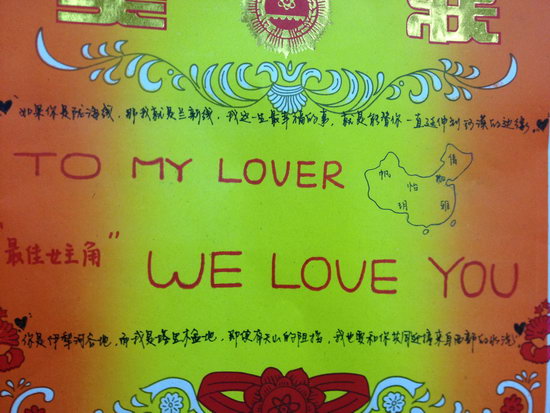 奖状
如果你是陇海线，那我就是兰新线，我这一生最幸福的事，就是能替你一直延伸到沙漠的边缘
TO MY LOVER
帆 倩
怡
玥 雅
"最佳女主角"
WE LOVE YOU
你是伊犁河谷地，而我是塔里木盆地，即使有天山的阻挡，我也要和你共同迎接来自西部的水汽